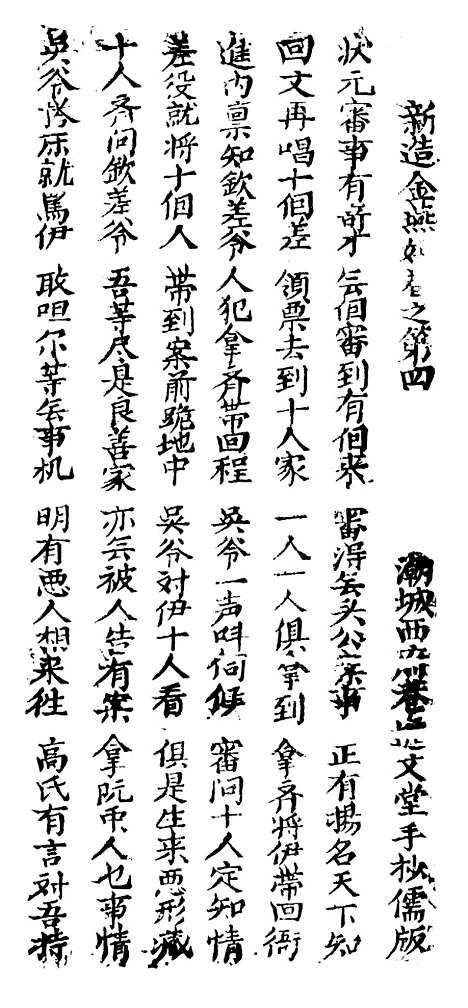 新造金燕 卷之第四 潮城西 巷 文堂手抄儒版
状元審事有奇才 無但審到有但来 審得無头公案事 正有揚名天下知
回文再唱十個差 領票去到十人家 一人一人俱拿到 拿齐將伊帶回衙
進內禀知欽差爷 人犯拿齐带回程 吳爷一声呌伺候 審问十人定知情
差役就将十個人 带到案前跪地中 吳爷对伊十人看 俱是生来恶形藏
十人齐问欽差爷 吾等尽是良善家 亦無被人告有案 拿阮帀人乜事情
吳爷 床就駡伊 敢呾尔等無事机 明有恶人想来往 高氏有言对吾持